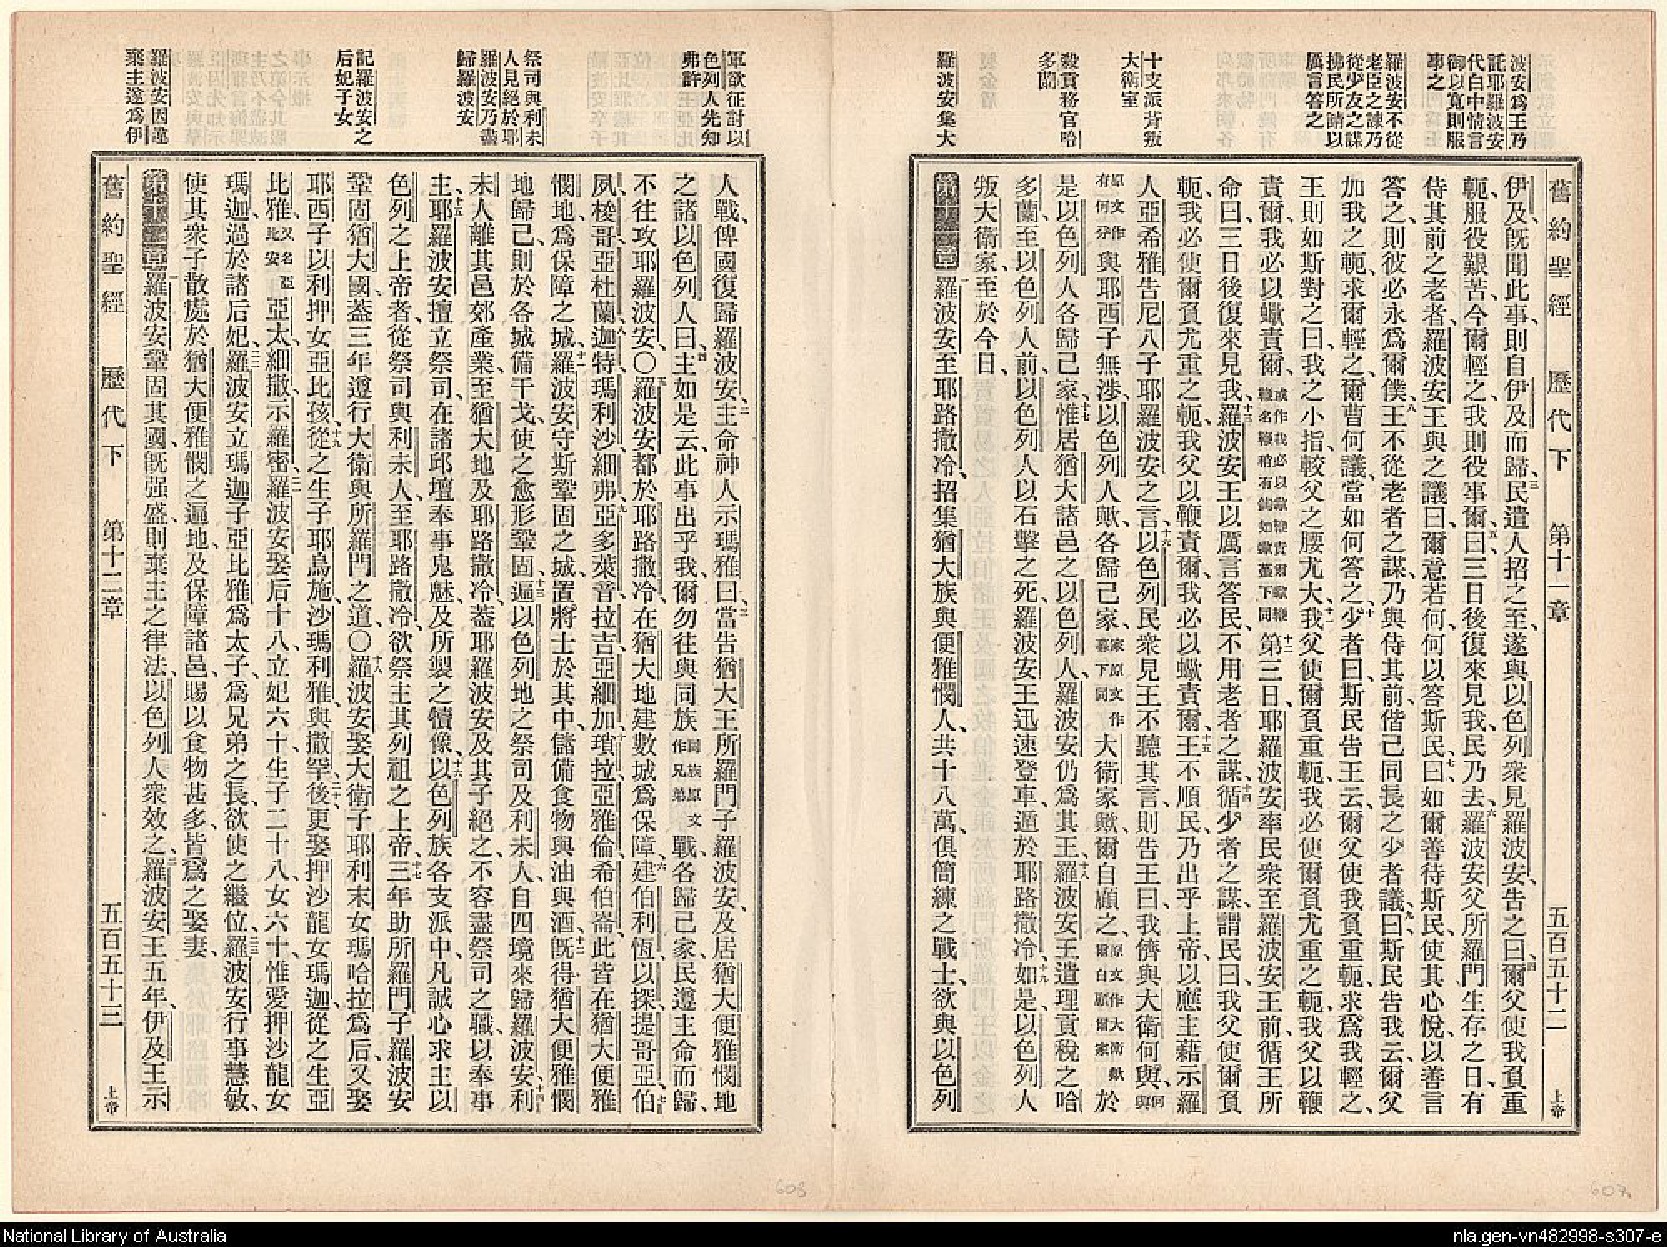 波安爲王乃
託耶羅波安
代白中情言
御以寬則服
事之
羅波安不從
老臣之諫乃
從少友之謀
拂民所請以
厲言答之
十支派背叛
大衛室
殺賁務官哈
多蘭
羅波安集大
舊約聖經 歷代下 第十一章 五百五十二 上帝
伊及旣聞此事、則自伊及而歸、三民遣人招之至、遂與以色列衆見羅波安告之曰、四爾父使我負重
軛、服役艱苦、今爾輕之、我則役事爾、五曰、三日後復來見我、民乃去、六羅波安父所羅門生存之日、有
侍其前之老者、羅波安王與之議曰、爾意若何、何以答斯民、七曰、如爾善待斯民、使其心悅、以善言
答之、則彼必永爲爾僕、八王不從老者之謀、乃與侍其前偕己同長之少者議、九曰、斯民告我云、爾父
加我之軛、求爾輕之、爾曹何議、當如何答之、十少者曰、斯民告王云、爾父使我負重軛、求爲我輕之、
王則如斯對之曰、我之小指、較父之腰尤大、十一我父使爾負重軛、我必使爾負尤重之軛、我父以鞭
責爾、我必以蠍責爾、或作我必以蠍鞭責爾蠍鞭鞭名鞭稍有鉤如蠍蠆下同十二第三日、耶羅波安率民衆至羅波安王前、循王所
命曰、三日後復來見我、十三羅波安王以厲言答民、不用老者之謀、十四循少者之謀、謂民曰、我父使爾負
軛、我必使爾負尤重之軛、我父以鞭責爾、我必以蠍責爾、十五王不順民、乃出乎上帝、以應主藉示羅
人亞希雅告尼八子耶羅波安之言、十六以色列民衆見王不聽其言、則告王曰、我儕與大衛何與、
與耶西子無涉、以色列人歟、各歸己家、大衛家歟、爾自顧之、於
是以色列人各歸己家、十七惟居猶大諸邑之以色列人、羅波安仍爲其王、十八羅波安王遣理貢稅之哈
多蘭、至以色列人前、以色列人以石擊之死、羅波安王迅速登車、遁於耶路撒冷、十九如是、以色列人
叛大衛家、至於今日、
第十一章一羅波安至耶路撒冷、招集猶大族與便雅憫人、共十八萬、俱簡練之戰士、欲與以色列
軍欲征討以
色列人先知
弗許
祭司與利未
人見絕於耶
羅波安乃盡
歸羅波安
記羅波安之
后妃子女
羅波安因進
棄主遂爲伊
人戰、俾國復歸羅波安、二主命神人示瑪雅曰、三當告猶大王所羅門子羅波安、及居猶大便雅憫地
之諸以色列人曰、四主如是云、此事出乎我、爾勿往與同族同族原文作兄弟戰、各歸己家、民遵主命而歸、
不往攻耶羅波安、〇五羅波安都於耶路撒冷、在猶大地建數城爲保障、六建伯利恆、以探、提哥亞、七伯
夙、梭哥、亞杜蘭、八迦特、瑪利沙、細弗、九亞多萊音、拉吉、亞細加、十瑣拉、亞雅倫、希伯崙、此皆在猶大便雅
憫地、爲保障之城、十一羅波安守斯鞏固之城、置將士於其中、儲備食物與油與酒、十二旣得猶大便雅憫
地歸己、則於各城備干戈、使之愈形鞏固、十三遍以色列地之祭司及利未人、自四境來歸羅波安、十四利
未人離其邑郊產業、至猶大地及耶路撒冷、蓋耶羅波安及其子絕之、不容盡祭司之職、以奉事
主、十五耶羅波安擅立祭司、在諸邱壇奉事鬼魅、及所製之犢像、十六以色列族各支派中、凡誠心求主以
色列之上帝者、從祭司與利未人、至耶路撒冷、欲祭主其列祖之上帝、十七三年助所羅門子羅波安
鞏固猶大國、蓋三年遵行大衛與所羅門之道、〇十八羅波安娶大衛子耶利末女瑪哈拉爲后、又娶
耶西子以利押女亞比孩、十九從之生子耶烏施、沙瑪利雅、與撒罕、二十後更娶押沙龍女瑪迦、從之生亞
比雅、又名亞比安亞太、細撒、示羅密、二一羅波安娶后十八、立妃六十、生子二十八、女六十、惟愛押沙龍女
瑪迦、過於諸后妃、二二羅波安立瑪迦子亞比雅爲太子、爲兄弟之長、欲使之繼位、二三羅波安行事慧敏、
使其衆子散處於猶大便雅憫之遍地、及保障諸邑、賜以食物甚多、皆爲之娶妻、
第十二章一羅波安鞏固其國、旣强盛、則棄主之律法、以色列人衆效之、二羅波安王五年、伊及王示
舊約聖經 歷代下 第十二章 五百五十三 上帝
National Library of Australia
nla.gen-vn482998-s307-e